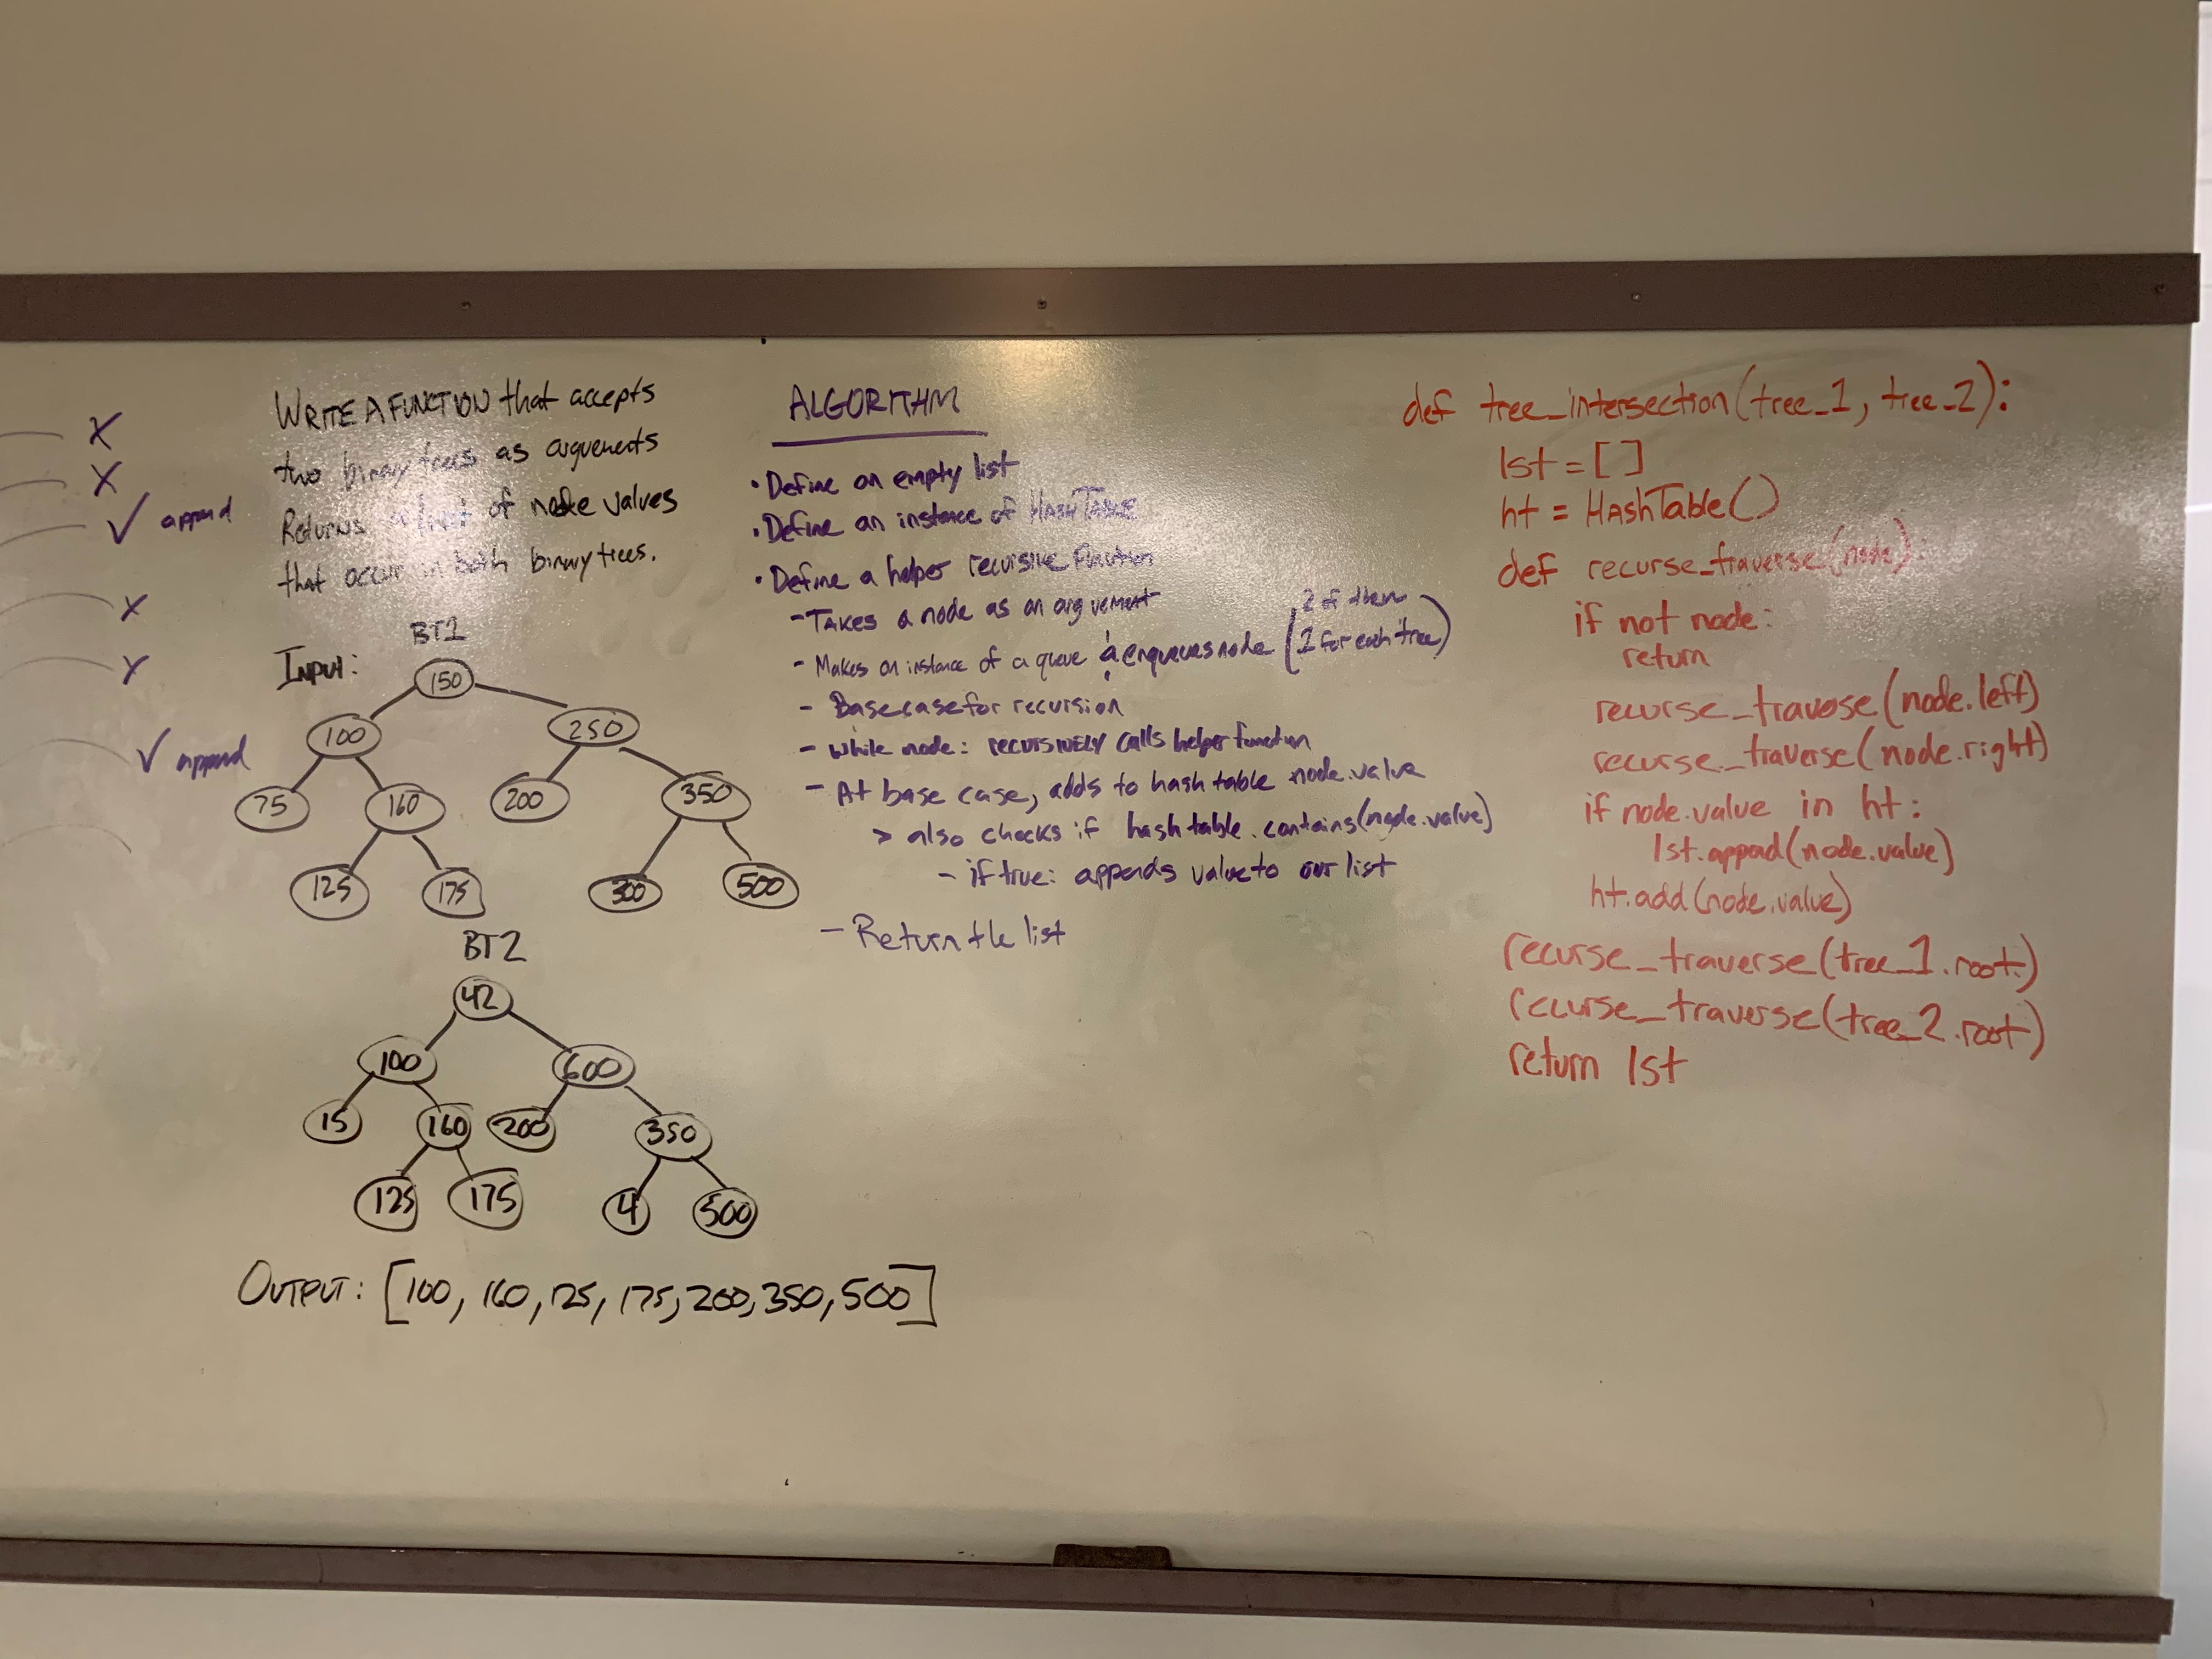 X
X
✓ append
X
X
✓ append
WRITE A FUNCTION that accepts
two binary trees as arguements
Returns a list of node values
that occur in both binary trees.
BT1
INPUT:
150
100
250
75
160
200
350
125
175
300
500
BT2
42
100
600
15
160
200
350
125
175
4
500
OUTPUT: [100, 160, 125, 175, 200, 350, 500]
ALGORITHM
• Define an empty list
• Define an instance of HASHTABLE
• Define a helper recursive function
- TAKES a node as an arguement
- Makes an instance of a queue & enqueues node (2 of them
1 for each tree)
- Base case for recursion
- While node: recursively calls helper function
- At base case, adds to hash table node.value
> also checks if hashtable.contains(node.value)
- if true: appends value to our list
- Return the list
def tree_intersection(tree_1, tree_2):
lst = []
ht = HashTable()
def recurse_traverse(node):
if not node:
return
recurse_travese(node.left)
recurse_traverse(node.right)
if node.value in ht:
lst.append(node.value)
ht.add(node.value)
recurse_traverse(tree_1.root)
recurse_traverse(tree_2.root)
return lst